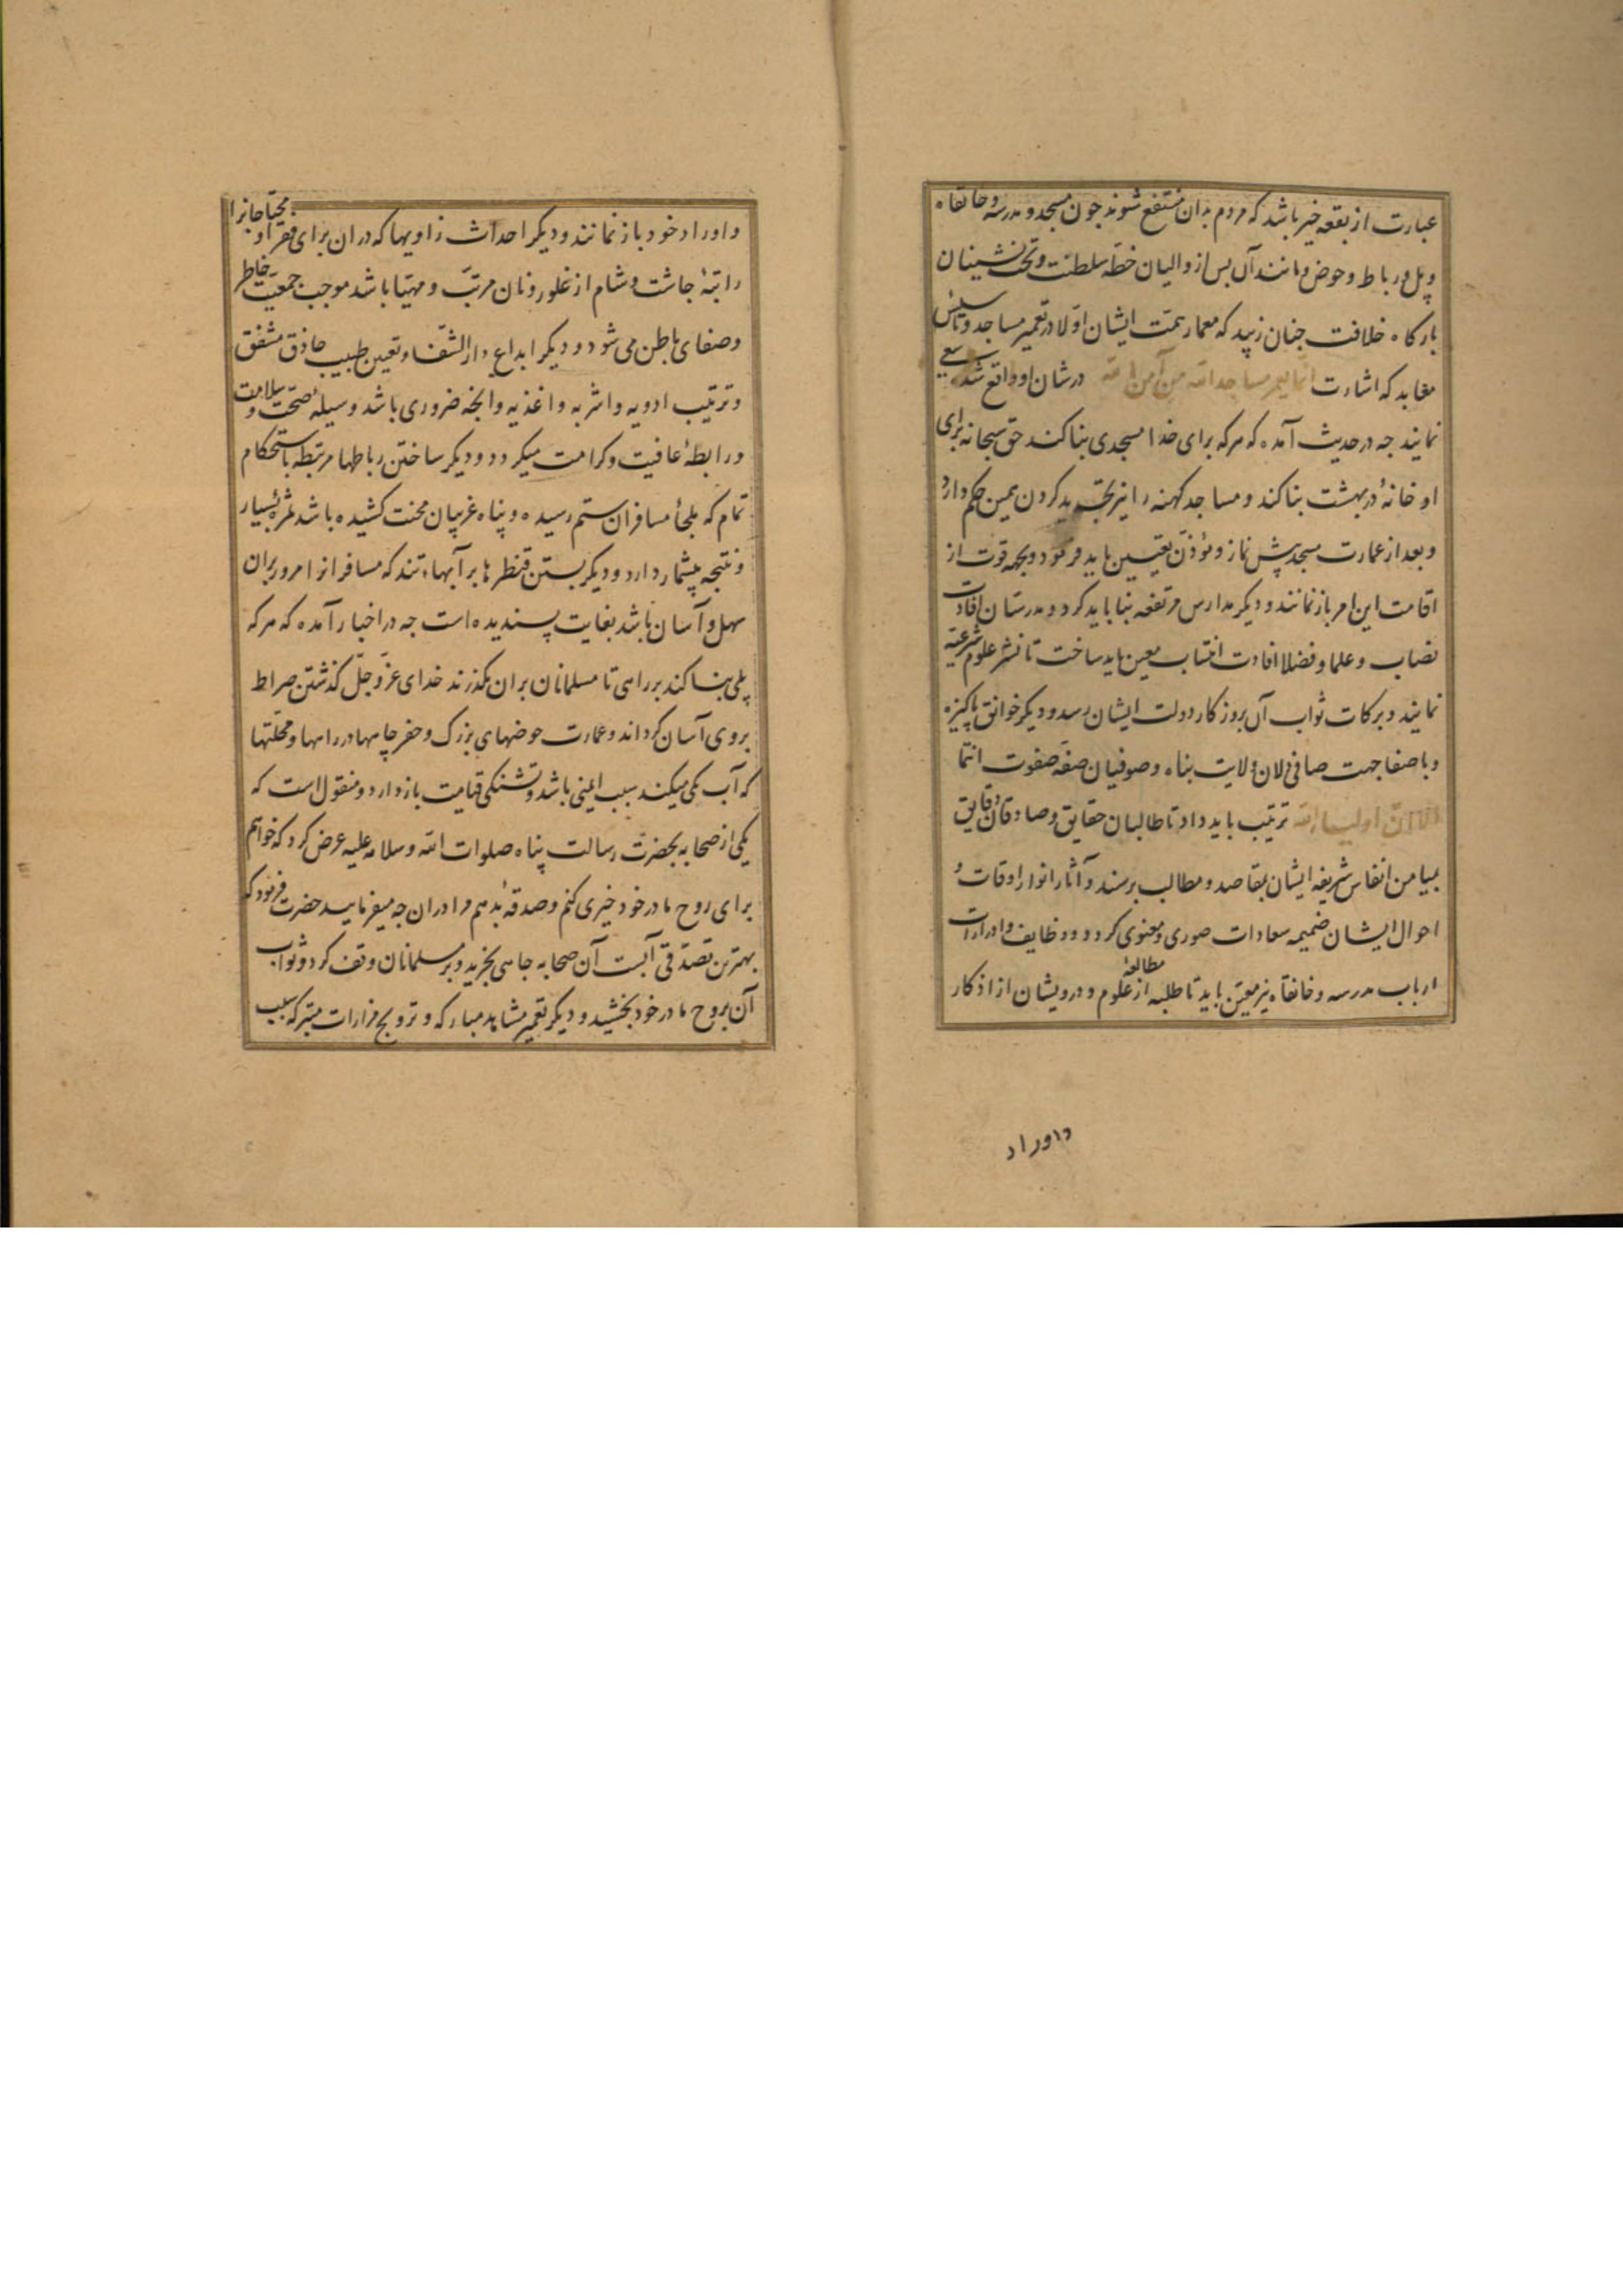 عبارت از بقعه خیر باشد که مردم بدان منتفع شوند جون مسجد و مدرسه و خانقاه
و پل و رباط و حوض و مانند آن بس از والیان خطّه سلطنت و تخت نشینان
بارکاه خلافت جنان زیبد که معمار همّت ایشان اوّلا در تعمیر مساجد و تاسیس
معابد که اشارت انما یعمر مساجد الله من آمن بالله در شان او واقع شد سعی
نمایند جه در حدیث آمده که هرکه برای خدا مسجدی بنا کند حق سبحانه برای
او خانهٔ در بهشت بنا کند و مساجد کهنه را نیز تجدید کردن همین حکم دارد
و بعد از عمارت مسجد پیش نماز و مؤذّن تعیین باید فرمود و بجهة قوت از
اقامت این امر باز نمانند و دیکر مدارس مرتفعه بنا باید کرد و مدرسان افادت
نصاب و علما و فضلا افادت انتساب معین باید ساخت تا نشر علوم شرعیّه
نمایند و برکات ثواب آن بروزکار دولت ایشان رسد و دیکر خوانق پاکیزه
و با صفا جهت صافی دلان ولایت بناه و صوفیان صفّه صفوت انتما
الا ان اولیاء الله ترتیب باید داد تا طالبان حقایق و صادقان دقایق
بمیامن انفاس شریفه ایشان بمقاصد و مطالب برسند و آثار انوار اوقات و
احوال ایشان ضمیمه سعادات صوری و معنوی کردد و وظایف و ادرارات
ارباب مدرسه و خانقاه نیز معیّن باید تا طلبه از مطالعهٔ علوم و درویشان از اذکار
و اوراد
و اوراد خود باز نمانند و دیکر احداث زاویها که در ان برای فقرا و محتاجانرا
راتبهٔ جاشت و شام از غلور و نان مرتّب و مهیّا باشد موجب جمعیّت خاطر
و صفای باطن می شود و دیکر ابداع دار الشّفاء و تعیین طبیب حاذق مشفق
و ترتیب ادویه و اشربه و اغذیه و انجه ضروری باشد وسیلهٔ صحّت و سلامت
و رابطهٔ عافیت و کرامت میکردد و دیکر ساختن رباطها مرتبطه باستحکام
تمام که ملجأ مسافران ستم رسیده و پناه غریبان محنت کشیده باشد ثمرهٔ بسیار
و نتیجه بیشمار دارد و دیکر بستن قنطرها بر آبهاء تند که مسافرانرا مرور بران
سهل و آسان باشد بغایت پسندیده است جه در اخبار آمده که هرکه
پلی بنا کند بر راهی تا مسلمانان بران بکذرند خدای عزّ و جلّ کذشتن صراط
بروی آسان کرداند و عمارت حوضهای بزرک و حفر چاهها در راهها و محلّتها
که آب کمی میکند سبب ایمنی باشد و تشنکی قیامت باز دارد و منقول است که
یکی از صحابه بحضرت رسالت پناه صلوات الله و سلامه علیه عرض کرد که خواهم
برای روح مادر خود خیری کنم و صدقه بدهم مرا دران جه میفرمایید حضرت فرمود که
بهترین تصدّقی آبست آن صحابه جاهی بخرید و بر مسلمانان وقف کرد و ثواب
آن بروح مادر خود بخشید و دیکر تعمیر مشاهد مبارکه و ترویج مزارات متبرکه سبب